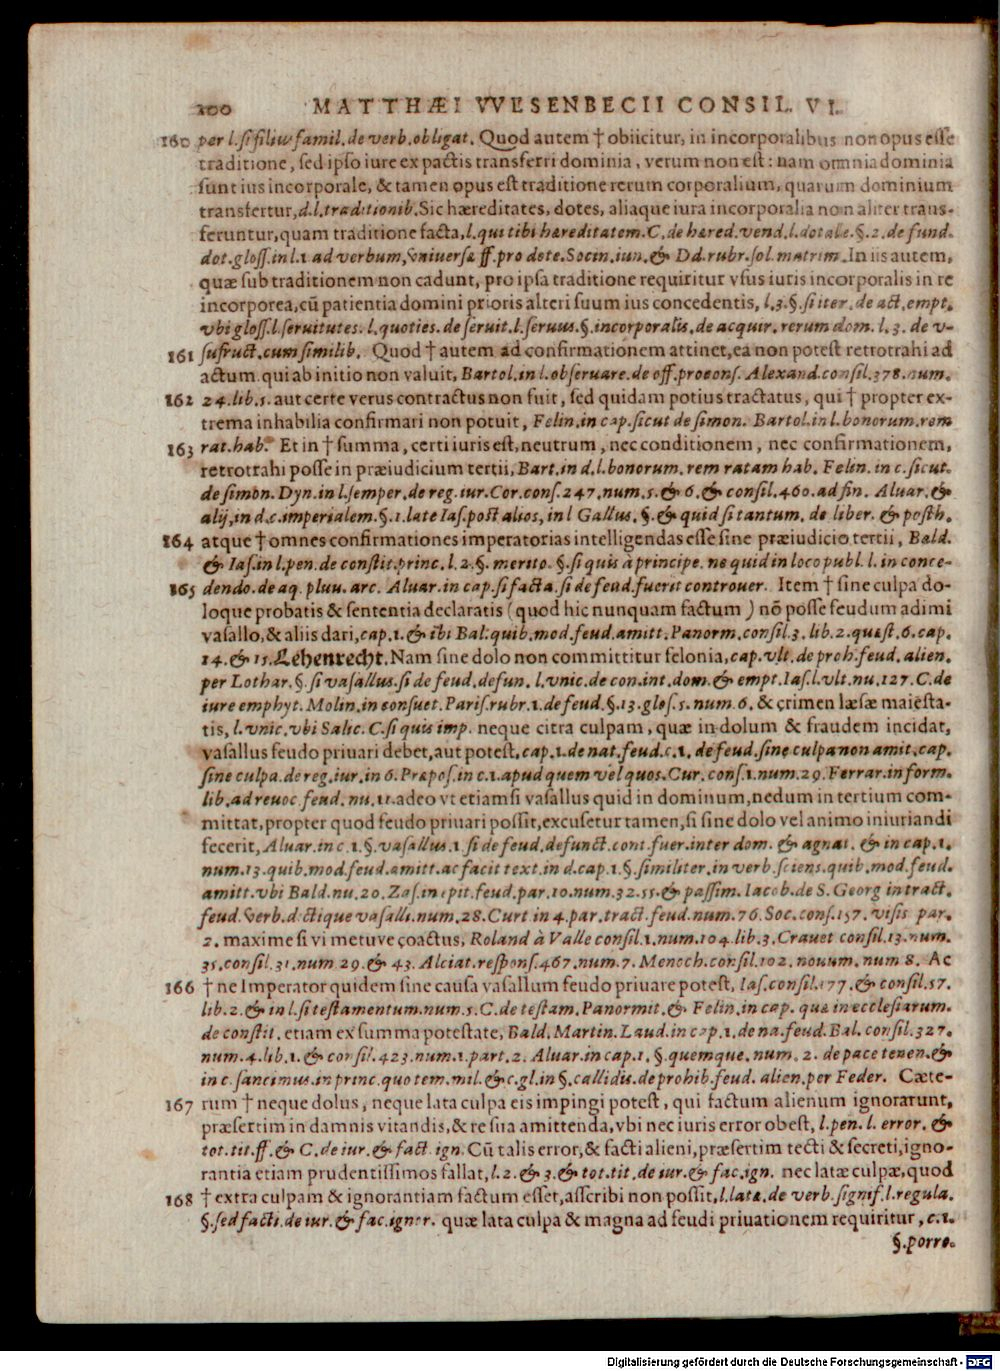 200 MATTHÆI VVESENBECII CONSIL. VI.
160 per l. si filius famil. de verb. obligat. Quod autem † obiicitur, in incorporalibus non opus esse
traditione, sed ipso iure ex pactis transferri dominia, verum non est: nam omnia dominia
sunt ius incorporale, & tamen opus est traditione rerum corporalium, quarum dominium
transfertur, d. l. traditionib. Sic hæreditates, dotes, aliaque iura incorporalia non aliter trans-
feruntur, quam traditione facta, l. qui tibi hæreditatem. C. de hæred. vend. l. dotale. §. 2. de fund.
dot. gloss. in l. 1. ad verbum, Vniuersæ ff. pro dote. Socin. iun. & Dd. rubr. sol. matrim. In iis autem,
quæ sub traditionem non cadunt, pro ipsa traditione requiritur vsus iuris incorporalis in re
incorporea, cū patientia domini prioris alteri suum ius concedentis, l. 3. §. si iter. de act. empt.
vbi gloss. l. seruitutes. l. quoties. de seruit. l. seruus. §. incorporalis. de acquir. rerum dom. l. 3. de v-
161 sufruct. cum similib. Quod † autem ad confirmationem attinet, ea non potest retrotrahi ad
actum qui ab initio non valuit, Bartol. in l. obseruare. de off. procons. Alexand. consil. 378. num.
162 24. lib. 5. aut certe verus contractus non fuit, sed quidam potius tractatus, qui † propter ex-
trema inhabilia confirmari non potuit, Felin. in cap. sicut de simon. Bartol. in l. bonorum. rem
163 rat. hab. Et in † summa, certi iuris est, neutrum, nec conditionem, nec confirmationem,
retrotrahi posse in præiudicium tertii, Bart. in d. l. bonorum. rem ratam hab. Felin. in c. sicut.
de simon. Dyn. in l. semper. de reg. iur. Cor. cons. 247. num. 5. & 6. & consil. 460. ad fin. Aluar. &
alij, in d. c. imperialem. §. 1. late Ias. post alios, in l Gallus. §. & quid si tantum. de liber. & posth.
164 atque † omnes confirmationes imperatorias intelligendas esse sine præiudicio tertii, Bald.
& Ias. in l. pen. de constit. princ. l. 2. §. merito. §. si quis à principe. ne quid in loco publ. l. in conce-
165 dendo. de aq. pluu. arc. Aluar. in cap. si facta. si de feud. fuerit controuer. Item † sine culpa do-
loque probatis & sententia declaratis (quod hic nunquam factum) nō posse feudum adimi
vasallo, & aliis dari, cap. 1. & ibi Bal: quib. mod. feud. amitt. Panorm. consil. 3. lib. 2. quæst. 6. cap.
14. & 15. Lehenrecht. Nam sine dolo non committitur felonia, cap. vlt. de proh. feud. alien.
per Lothar. §. si vasallus. si de feud. defun. l. vnic. de con. int. dom. & empt. Ias. l. vlt. nu. 127. C. de
iure emphyt. Molin. in consuet. Paris. rubr. 1. de feud. §. 13. glos. 5. num. 6. & crimen læsæ maiesta-
tis, l. vnic. vbi Salic. C. si quis imp. neque citra culpam, quæ in dolum & fraudem incidat,
vasallus feudo priuari debet, aut potest, cap. 1. de nat. feud. c. 1. de feud. sine culpa non amit. cap.
sine culpa. de reg. iur. in 6. Præpos. in c. 1. apud quem vel quos. Cur. cons. 1. num. 29. Ferrar. in form.
lib. ad reuoc feud. nu. 11. adeo vt etiamsi vasallus quid in dominum, nedum in tertium com-
mittat, propter quod feudo priuari possit, excusetur tamen, si sine dolo vel animo iniuriandi
fecerit, Aluar. in c. 1. §. vasallus. 1 si de feud. defunct. cont. fuer. inter dom. & agnat. & in cap. 1.
num. 13. quib. mod. feud. amitt. ac facit text. in d. cap. 1. §. similiter. in verb. sciens. quib. mod. feud.
amitt. vbi Bald. nu. 20. Zas. in epit. feud. par. 10. num. 32. 55. & passim. Iacob. de S. Georg in tract.
feud. verb. dictique vasalli. num. 28. Curt in 4. par. tract. feud. num. 76. Soc. cons. 157. visis par.
2. maxime si vi metuve coactus, Roland à Valle consil. 1. num. 104. lib. 3. Crauet consil. 13. num.
35. consil. 31. num 29. & 43. Alciat. respons. 467. num. 7. Menoch. consil. 102. nouum. num 8. Ac
166 † ne Imperator quidem sine causa vasallum feudo priuare potest, Ias. consil. 177. & consil. 57.
lib. 2. & in l. si testamentum. num. 5. C. de testam. Panormit. & Felin. in cap. quæ in ecclesiarum.
de constit. etiam ex summa potestate, Bald. Martin. Laud. in cap. 1. de na. feud. Bal. consil. 327.
num. 4. lib. 1. & consil. 423. num. 1. part. 2. Aluar. in cap. 1. §. quemque. num. 2. de pace tenen. &
in c. sancimus. in princ. quo tem. mil. & c. gl. in §. callidis. de prohib. feud. alien. per Feder. Cæte-
167 rum † neque dolus, neque lata culpa eis impingi potest, qui factum alienum ignorarunt,
præsertim in damnis vitandis, & re sua amittenda, vbi nec iuris error obest, l. pen. l. error. &
tot. tit. ff. & C. de iur. & fact. ign. Cū talis error, & facti alieni, præsertim tecti & secreti, igno-
rantia etiam prudentissimos fallat, l. 2. & 3. & tot. tit. de iur. & fac. ign. nec latæ culpæ, quod
168 † extra culpam & ignorantiam factum esset, asscribi non possit, l. lata. de verb. signif. l. regula.
§. sed facti. de iur. & fac. ignor. quæ lata culpa & magna ad feudi priuationem requiritur, c. 1.
§. porro.
Digitalisierung gefördert durch die Deutsche Forschungsgemeinschaft - DFG